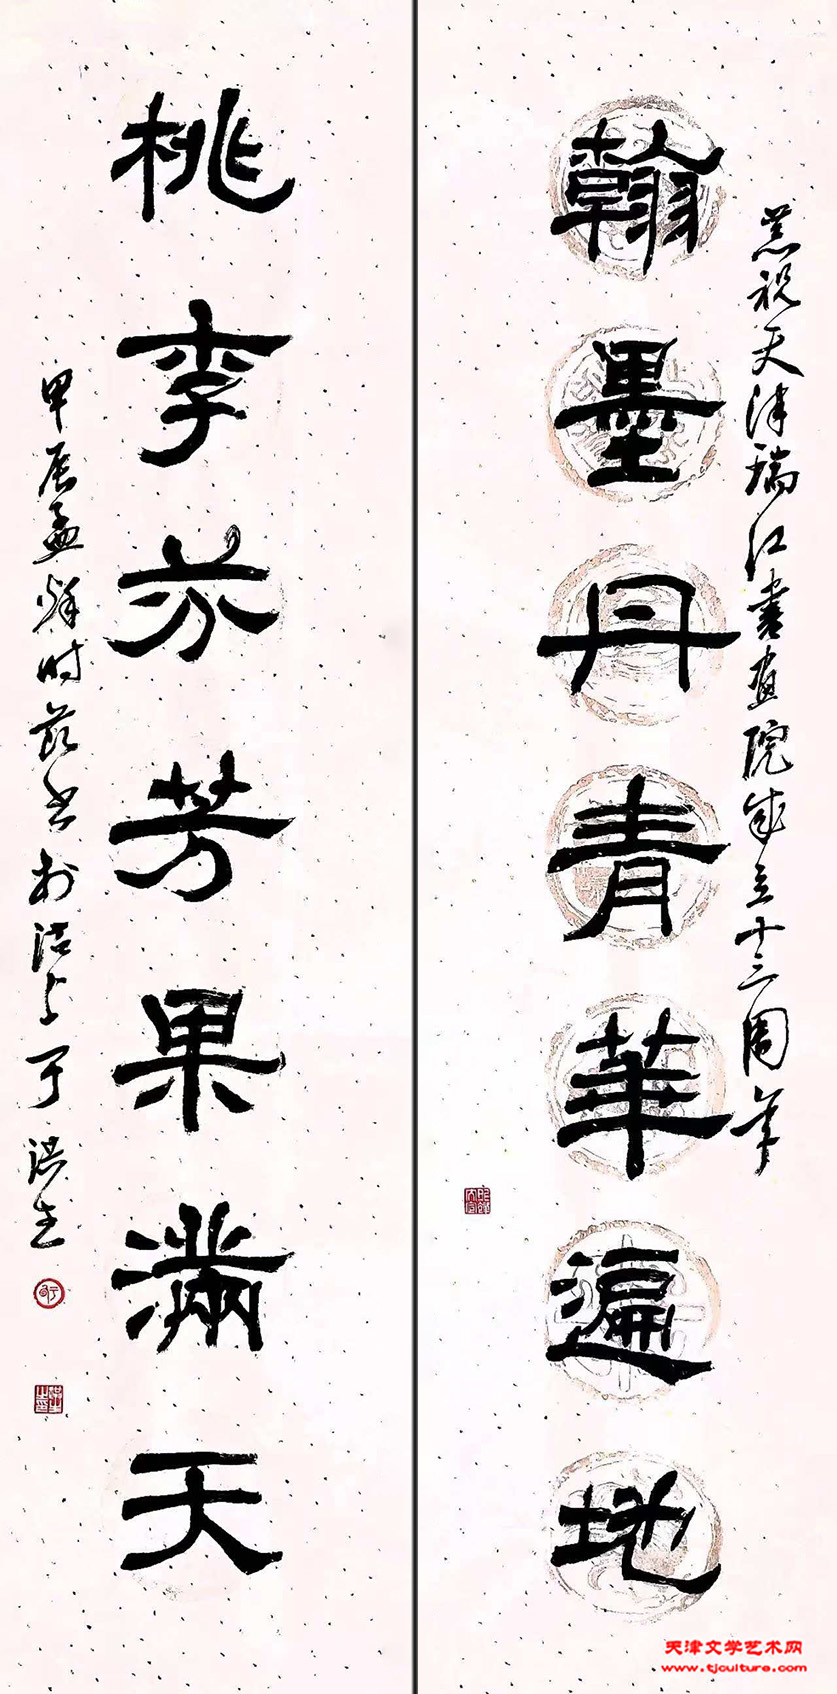 恭祝天津瑞江書画院成立十三周年
翰墨丹青華遍地
桃李芬芳果滿天
甲辰孟
时
书於沽上于洪志
天津文学艺术网
www.tjculture.com